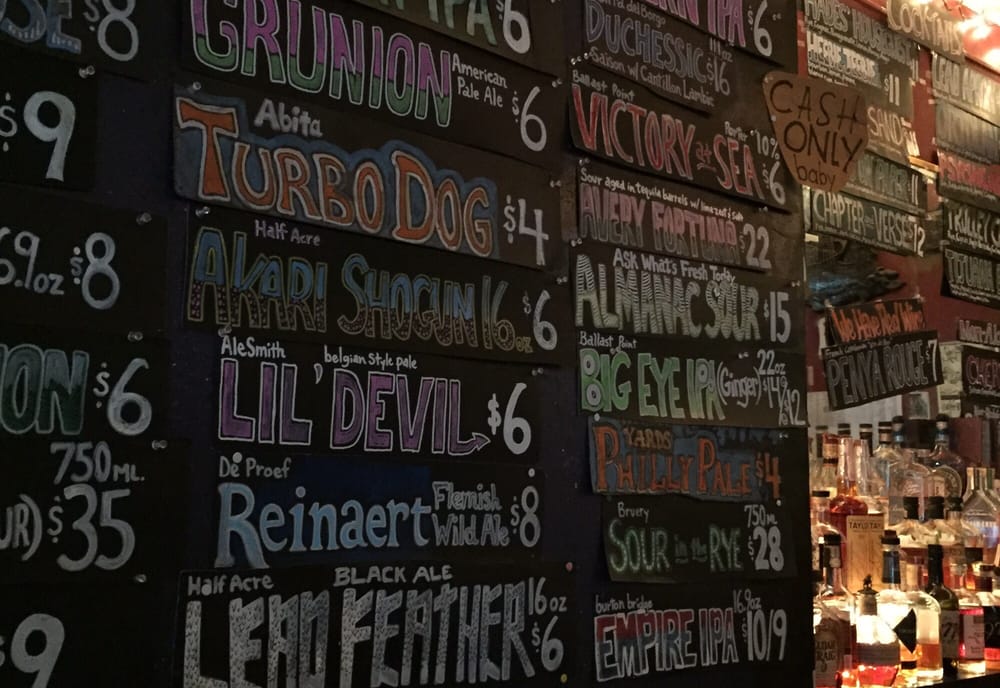 8
$9
69.1oz $8
ON $6
750ML.
UR) $35
9
IPA $6
GRUNION American Pale Ale $6
Abita
TURBO DOG $4
Half Acre
AKARI SHOGUN 16oz $6
AleSmith belgian style pale
LIL' DEVIL $6
De Proef
Reinaert Flemish Wild Ale $8
Half Acre BLACK ALE
LEAD FEATHER 16oz $6
IPA $6
del Borgo
DUCHESSIC 11oz $16
Saison w/ Cantillon Lambic
Ballast Point
VICTORY at SEA Porter 10% $6
Sour aged in tequila barrels w/ lime zest & salt
AVERY FORTUNA $22
Ask What's Fresh Today
ALMANAC SOUR $15
Ballast Point
BIG EYE IPA (Ginger) 22oz $14
12
YARDS
PHILLY PALE $4
Bruery
SOUR in the RYE 750ml $28
burton bridge
EMPIRE IPA 16.9oz $10/9
CASH ONLY baby
COCKTAILS
11
SAND
11
CHAPTER and VERSE 12
We Have Red Wine
PENYA ROUGE $7